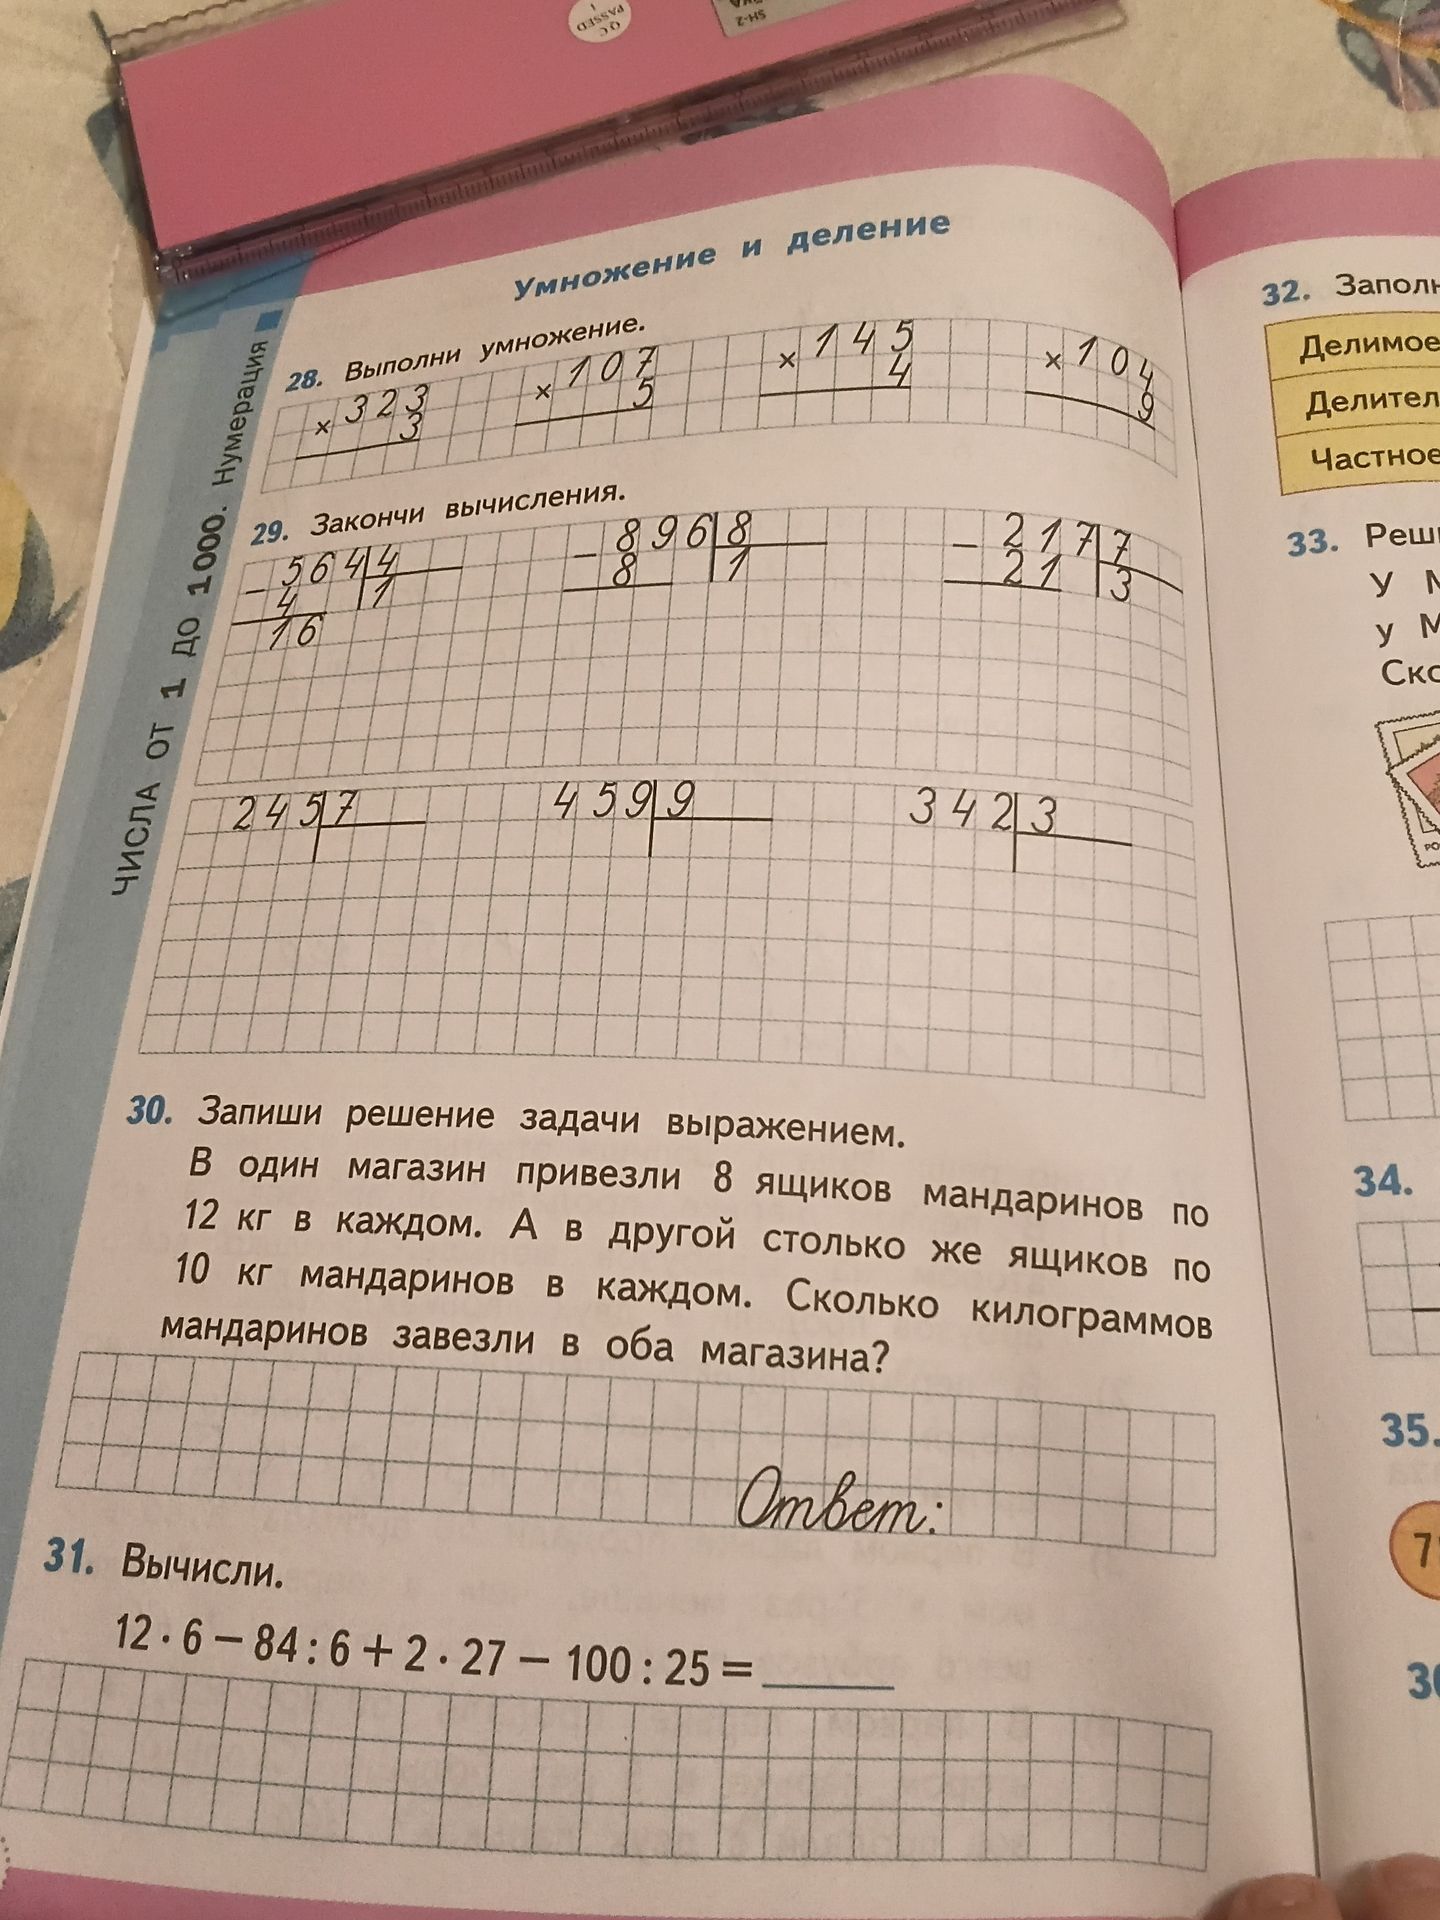 QC
PASSED
1
SH-2
Умножение и деление
ЧИСЛА ОТ 1 ДО 1000. Нумерация
28. Выполни умножение.
× 323
3
× 107
5
× 145
4
× 104
9
29. Закончи вычисления.
− 564 4
4 1
16
− 896 8
8 1
− 217 7
21 3
245 7
459 9
342 3
30. Запиши решение задачи выражением.
В один магазин привезли 8 ящиков мандаринов по
12 кг в каждом. А в другой столько же ящиков по
10 кг мандаринов в каждом. Сколько килограммов
мандаринов завезли в оба магазина?
Ответ:
31. Вычисли.
12 · 6 − 84 : 6 + 2 · 27 − 100 : 25 =
32. Заполн
Делимое
Делител
Частное
33. Реш
У М
у М
Ско
34.
35.